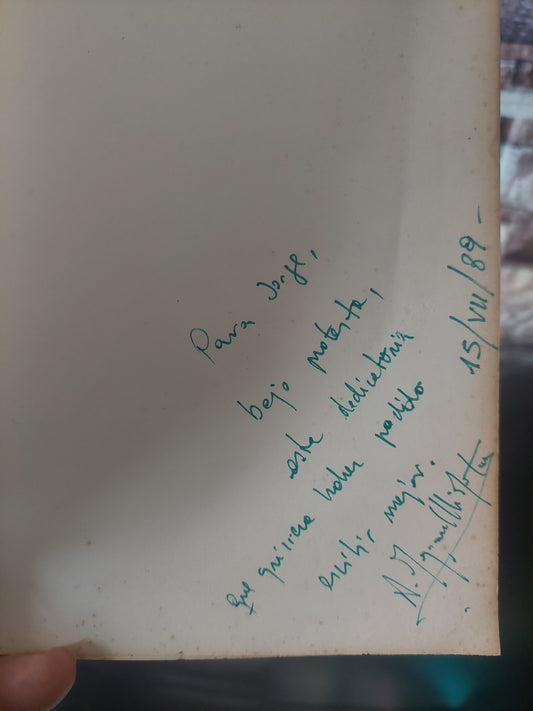 Para Jorge,
bajo protesta,
esta dedicatoria
que quisiera haber podido
escribir mejor.
15/VII/89-